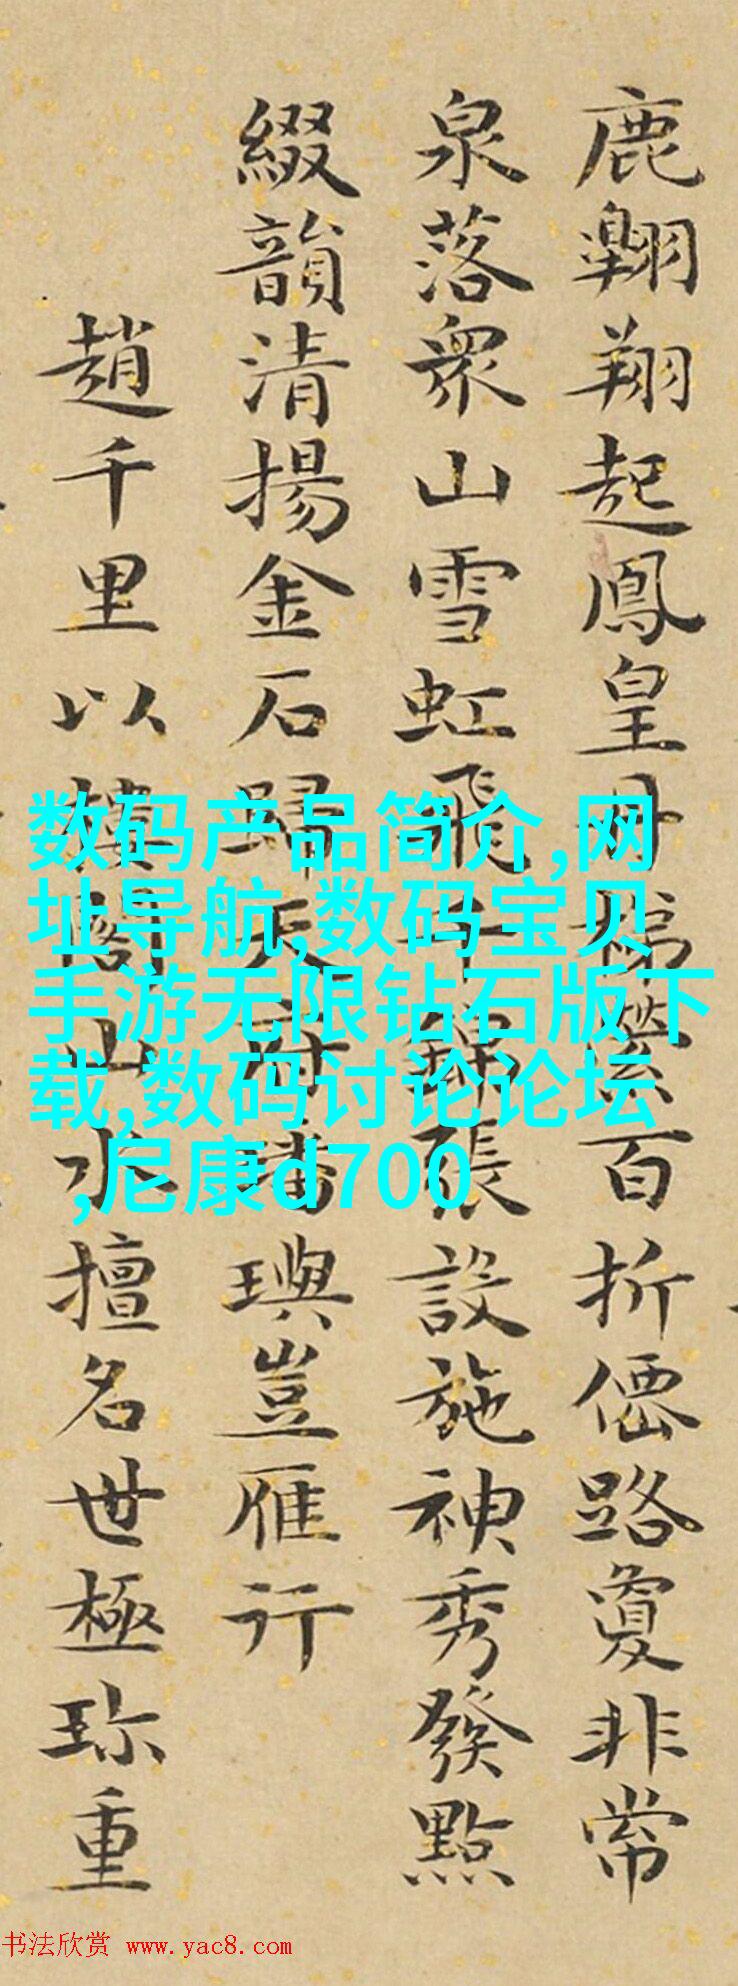 鹿翺翔起鳳皇丹梯縈百折僊路夐非常
泉落衆山雪虹飛千錦張設施神秀發點
綴韻清揚金石歸天府璠璵豈雁行
趙千里以樓閣山水擅名世極珍重
数码产品简介,网
址导航,数码宝贝
手游无限钻石版下
载,数码讨论论坛
,尼康d700
书法欣赏 www.yac8.com